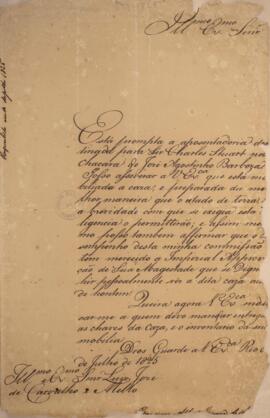 Ill.mo e Ex.mo Senr.
Está prompta a apozentadoria des-
tinada para Ser Charles Stuart na
Chacara de José Agostinho Barboza
Posso assegurar a V. Ex.ca que está mo-
biliada a caza, e preparada da me-
lhor maneira que o estado de terra, e
a brevidade com que se exigia esta di-
ligencia o permittirão; e assim mes-
mo posso tambem affirmar que o de-
sempenho desta minha commissão
tem merecido a Imperial Approva-
ção de Sua Magestade que se Dignou
hir pessoalmente vêr a dita caza
de hontem.
Queira agora V. Ex.ca indi-
car-me a quem devo mandar entregar
as chaves da Caza, e o inventario da sua
mobilia.
Deos Guarde a V. Ex.ca Rio
de Julho de 1825
Ill.mo e Ex.mo Snr Luiz José
de Carvalho e Mello